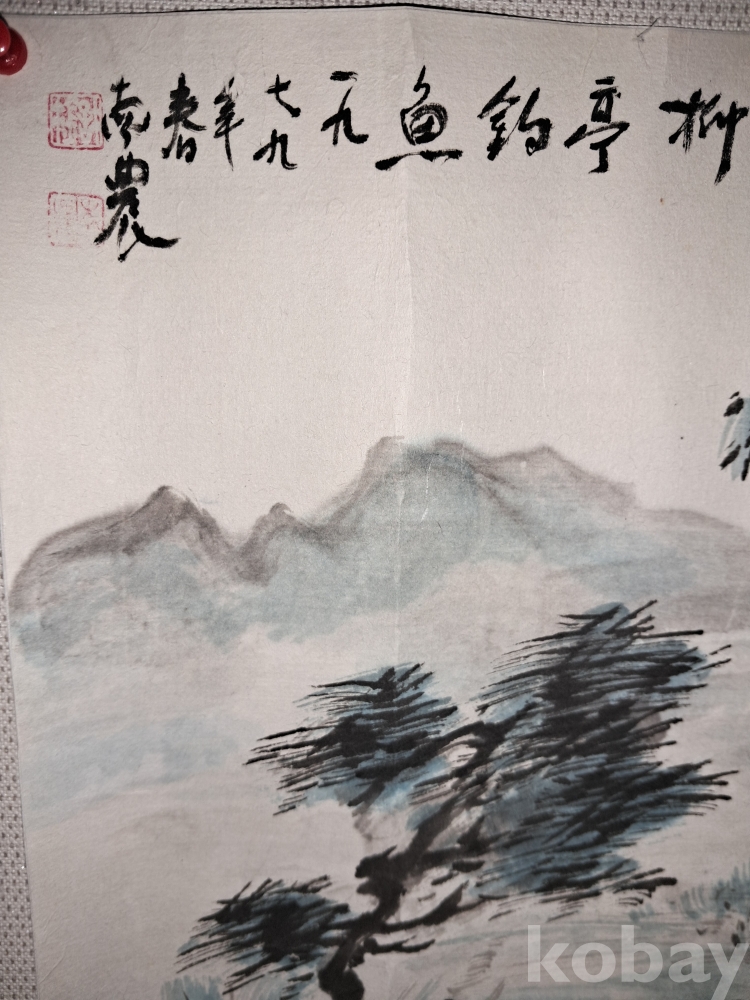 柳亭釣魚一九七九年春南農
kobay